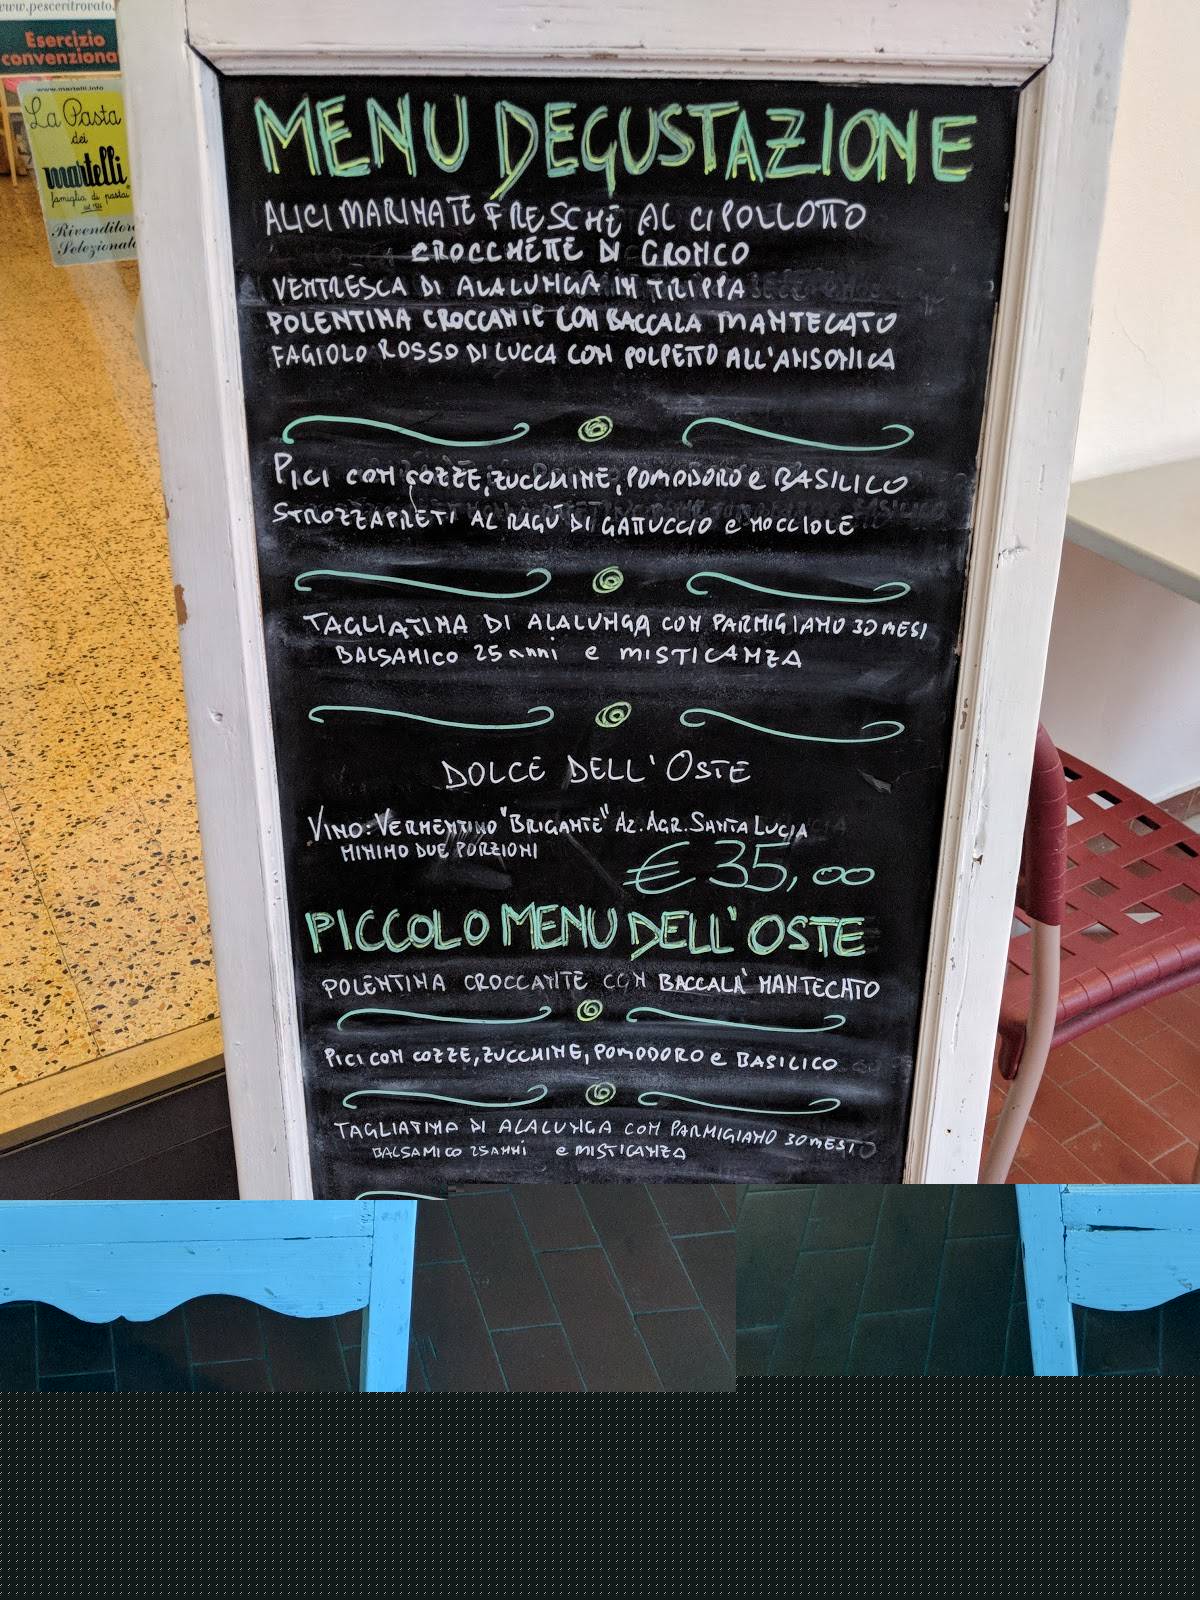 www.pesceritrovato.
Esercizio
convenziona
www.martelli.info
La Pasta
dei
martelli
famiglia di pastai
Rivenditore
Selezionato
MENU DEGUSTAZIONE
ALICI MARINATE FRESCHE AL CIPOLLOTTO
CROCCHETTE DI GRONCO
VENTRESCA DI ALALUNGA IN TRIPPA
POLENTINA CROCCANTE CON BACCALA MANTECATO
FAGIOLO ROSSO DI LUCCA CON POLPETTO ALL'ANSONICA
PICI CON COZZE, ZUCCHINE, POMODORO e BASILICO
STROZZAPRETI AL RAGÚ DI GATTUCCIO e NOCCIOLE
TAGLIATINA DI ALALUNGA CON PARMIGIANO 30 MESI
BALSAMICO 25 anni e MISTICANZA
DOLCE DELL'OSTE
VINO: VERMENTINO "BRIGANTE" AZ. AGR. SANTA LUCIA
MINIMO DUE PORZIONI
€ 35,00
PICCOLO MENU DELL'OSTE
POLENTINA CROCCANTE CON BACCALA' MANTECATO
PICI CON COZZE, ZUCCHINE, POMODORO e BASILICO
TAGLIATINA DI ALALUNGA CON PARMIGIANO 30 MESI
BALSAMICO 25 ANNI e MISTICANZA